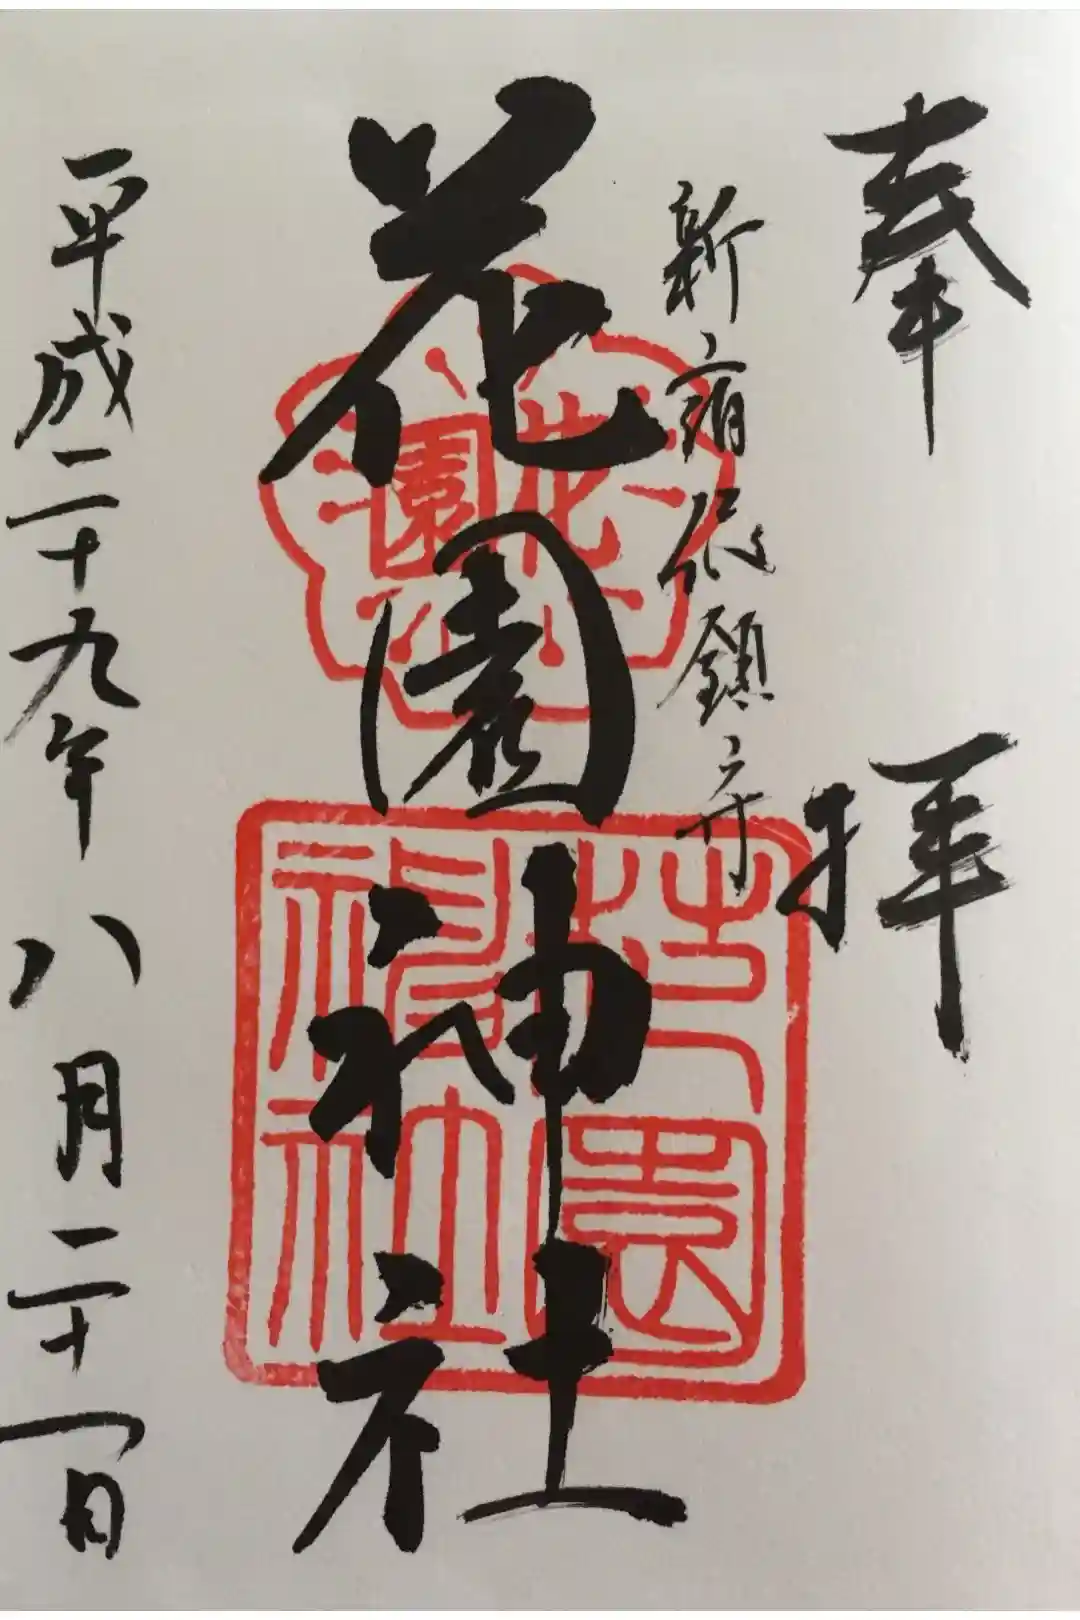 奉拝
新宿総鎮守
花園神社
花園神社
花園神社
平成二十九年八月二十一日